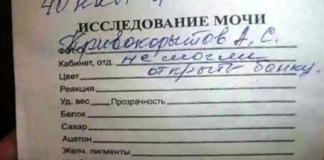 40 
ИССЛЕДОВАНИЕ МОЧИ
Ф.И.О. Кривокорытов А. С.
Кабинет, отд. не смогли
Цвет открыть банку.
Реакция
Уд. вес Прозрачность
Белок
Сахар
Ацетон
Желч. пигменты